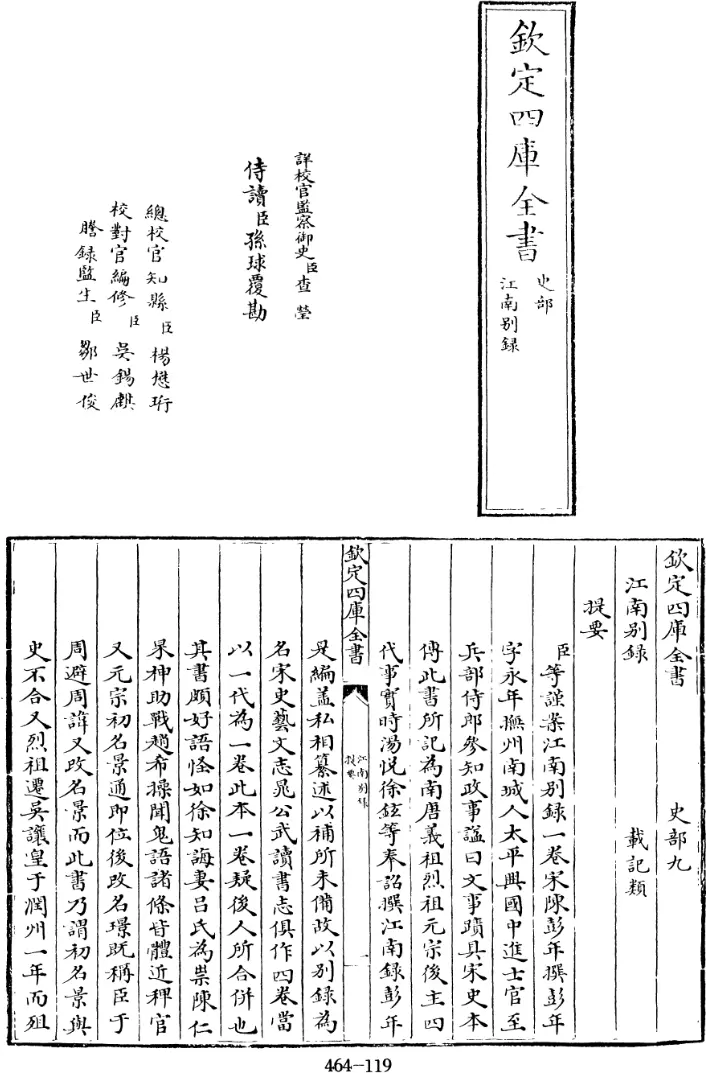 欽定四庫全書
史部
江南别録
詳校官監察御史臣查瑩
侍讀臣孫球覆勘
總校官知縣臣楊懋珩
校對官編修臣吳錫麒
謄録監生臣鄒世俊
欽定四庫全書 史部九
江南别録 載記類
提要
臣等謹案江南别録一卷宋陳彭年撰彭年
字永年撫州南城人太平興國中進士官至
兵部侍郎參知政事諡曰文事蹟具宋史本
傳此書所記為南唐義祖烈祖元宗後主四
代事實時湯悦徐鉉等奉詔撰江南録彭年
欽定四庫全書
江南别録
提要
一
是編蓋私相纂述以補所未備故以别録為
名宋史藝文志晁公武讀書志俱作四卷當
以一代為一卷此本一卷疑後人所合併也
其書頗好語怪如徐知誨妻呂氏為祟陳仁
杲神助戰趙希操聞鬼語諸條皆體近稗官
又元宗初名景通即位後改名璟既稱臣于
周避周諱又改名景而此書乃謂初名景與
史不合又烈祖遷吳讓皇于潤州一年而殂
464-119